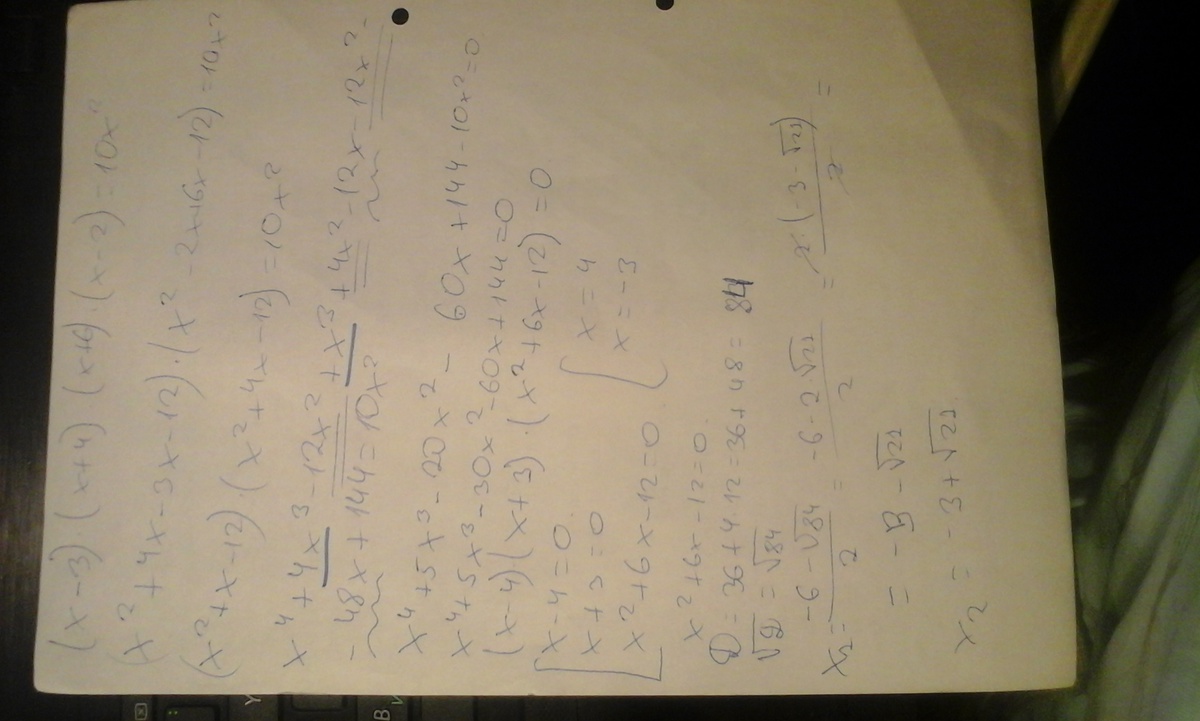 (x-3)·(x+4)·(x+6)·(x-2)=10x²
(x²+4x-3x-12)·(x²-2x+6x-12)=10x²
(x²+x-12)·(x²+4x-12)=10x²
x⁴+4x³-12x²+x³+4x²-12x-12x²-
-48x+144=10x²
x⁴+5x³-20x²-60x+144-10x²=0
x⁴+5x³-30x²-60x+144=0
(x-4)(x+3)·(x²+6x-12)=0
[x-4=0 [x=4
x+3=0 x=-3
x²+6x-12=0
x²+6x-12=0
D=36+4·12=36+48=84
√D=√84
x₁=(-6-√84)/2=(-6-2√21)/2=(2·(-3-√21))/2=
=-3-√21
x₂=-3+√21